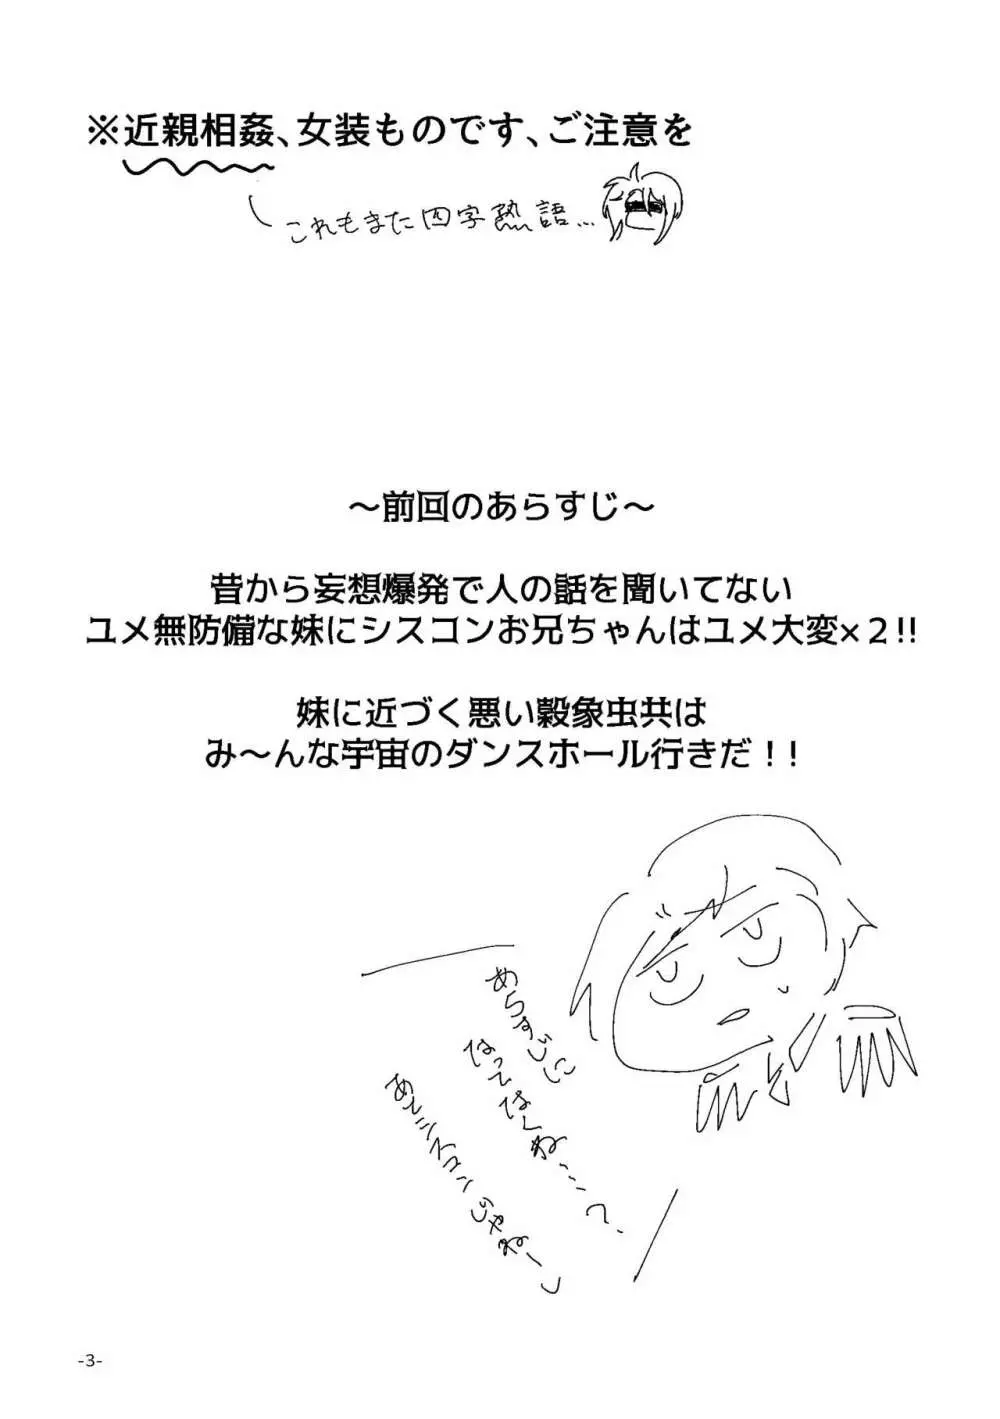 ※近親相姦、女装ものです、ご注意を
これもまた四字熟語...
～前回のあらすじ～
昔から妄想爆発で人の話を聞いてない
ユメ無防備な妹にシスコンお兄ちゃんはユメ大変×２!!
妹に近づく悪い穀象虫共は
み～んな宇宙のダンスホール行きだ！！
あらすじに
なってなくね…?
あとシスコンじゃねーし
-3-